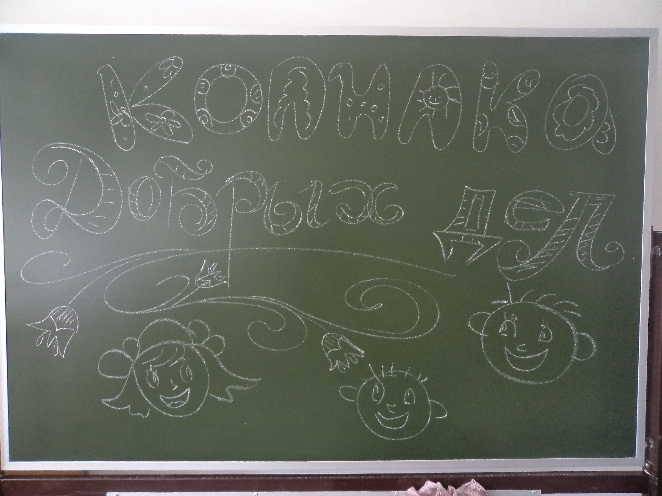 Копилка
Добрых дел